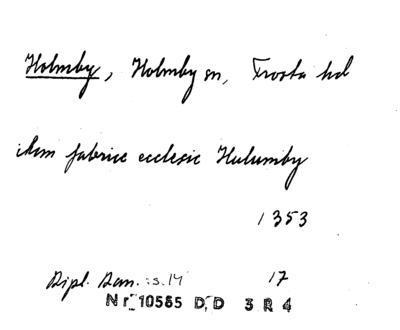 Holmby, Holmby sn, Frosta hd
item fabrice ecclesie Hulumby
1353
Dipl. Dan. :s.14 17
Nr 10565 D,D 3 R 4